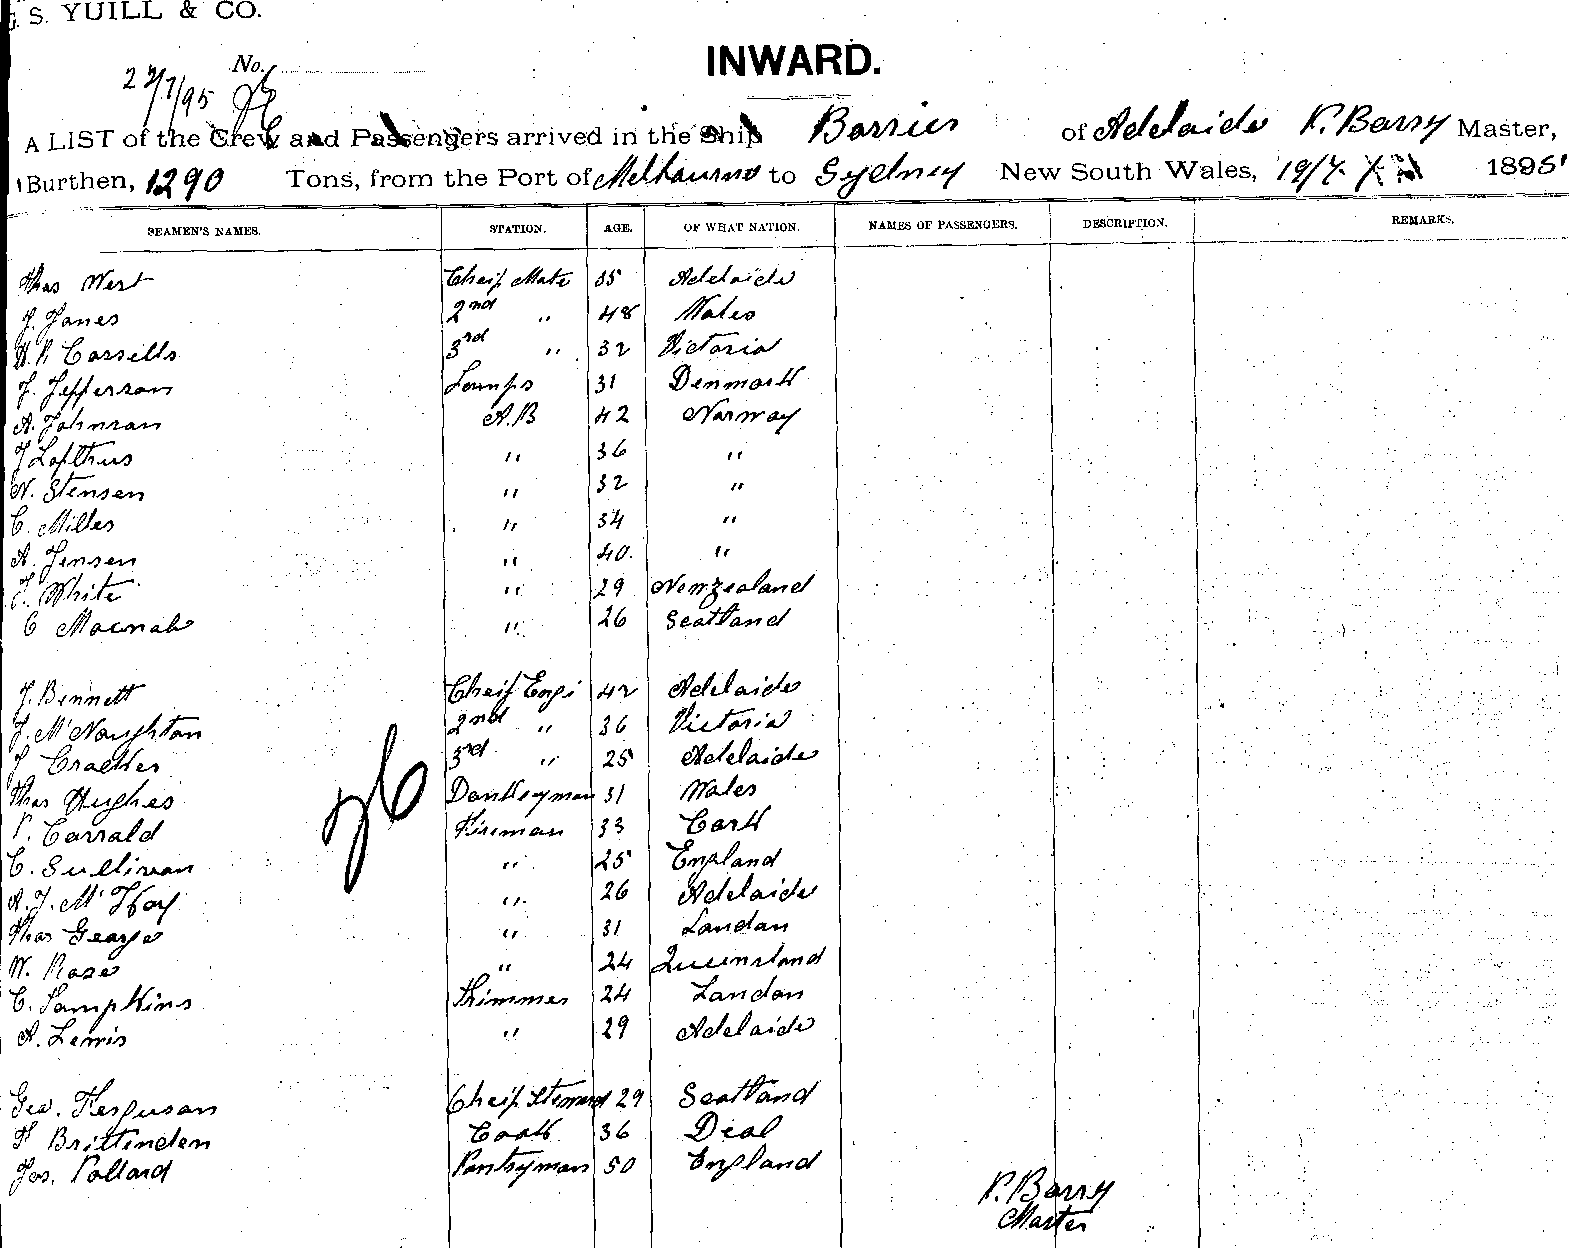 G. S. YUILL & CO.
No.
22/7/95
INWARD.
A LIST of the Crew and Passengers arrived in the Ship Barrier of Adelaide P. Barry Master,
Burthen, 1290 Tons, from the Port of Melbourne to Sydney New South Wales, 19/7 1895
SEAMEN'S NAMES. STATION. AGE. OF WHAT NATION. NAMES OF PASSENGERS. DESCRIPTION. REMARKS.
Thos West Cheif Mate 35 Adelaide
J. Jones 2nd " 48 Wales
Cassells 3rd " 32 Victoria
J. Jefferson Lamps 31 Denmark
A. Johnson A.B 42 Norway
J Lofthus " 36 "
N. Stensen " 32 "
C. Milles " 34 "
A. Jensen " 40 "
White " 29 Newzealand
C Macnab " 26 Scotland
J. Bennett Cheif Engi 42 Adelaide
J. McNaughton 2nd " 36 Victoria
J Cracker 3rd " 25 Adelaide
Thos Hughes Donkeyman 31 Wales
P. Carrald Fireman 33 Cork
C. Sullivan " 25 England
A. J. McKay " 26 Adelaide
Thos George " 31 London
W. Rose " 24 Queensland
C. Tompkins Trimmer 24 London
A. Lewis " 29 Adelaide
Geo. Ferguson Cheif Steward 29 Scotland
Brittinden Cook 36 Deal
Jos. Pollard Pantryman 50 England
P. Barry
Master